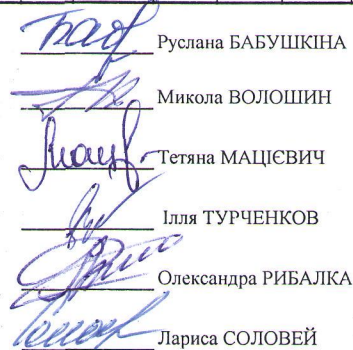 Руслана БАБУШКІНА
Микола ВОЛОШИН
Тетяна МАЦІЄВИЧ
Ілля ТУРЧЕНКОВ
Олександра РИБАЛКА
Лариса СОЛОВЕЙ